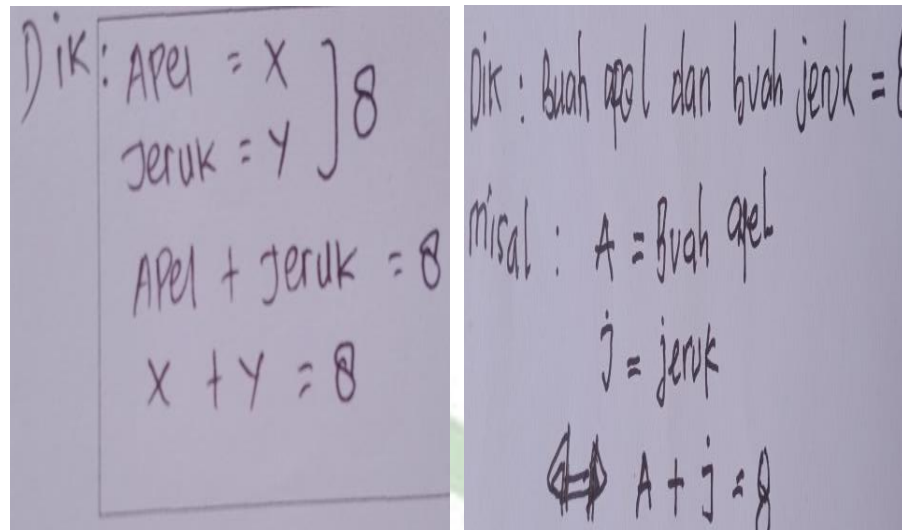 Dik: Apel = X ] 8
Jeruk = Y
Apel + Jeruk = 8
X + Y = 8
Dik : Buah apel dan buah jeruk = 8
misal : A = Buah apel
j = jeruk
⇔ A + j = 8